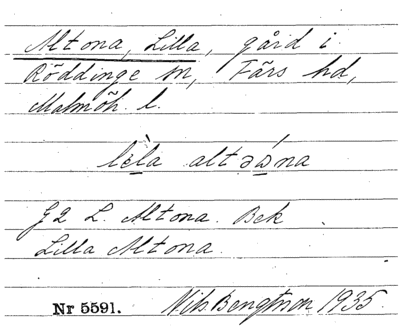 Altona, Lilla, gård i
Röddinge sn, Färs hd,
Malmöh. l.
lèla altəánа
G2 L. Altona. Bek
Lilla Altona.
Nr 5591. Nils Bengtsson 1935